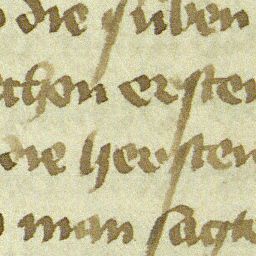 die suben
schon ersten
die hersten
man sagte